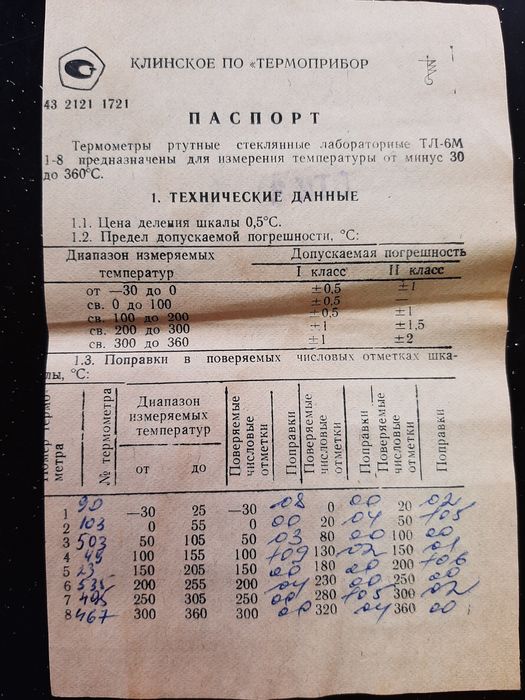 КЛИНСКОЕ ПО «ТЕРМОПРИБОР
43 2121 1721
ПАСПОРТ
Термометры ртутные стеклянные лабораторные ТЛ-6М
1-8 предназначены для измерения температуры от минус 30
до 360°С.
1. ТЕХНИЧЕСКИЕ ДАННЫЕ
1.1. Цена деления шкалы 0,5°С.
1.2. Предел допускаемой погрешности, °С:
Диапазон измеряемых температур Допускаемая погрешность
I класс II класс
от —30 до 0 ±0,5 ±1
св. 0 до 100 ±0,5 —
св. 100 до 200 ±0,5 ±1
св. 200 до 300 ±1 ±1,5
св. 300 до 360 ±1 ±2
1.3. Поправки в поверяемых числовых отметках шка-
лы, °С:
метра № термометра Диапазон измеряемых температур от до Поверяемые числовые отметки Поправки Поверяемые числовые отметки Поправки Поверяемые числовые отметки Поправки
1 90 —30 25 —30 08 0 00 20 02
2 103 0 55 0 00 20 04 50 +05
3 503 50 105 50 03 80 00 100 00
4 45 100 155 100 +09 130 02 150 01
5 23 150 205 150 00 180 00 200 +06
6 535 200 255 200 04 230 00 250 00
7 250 305 250 00 280 +05 300 02
8 467 300 360 300 00 320 04 360 00